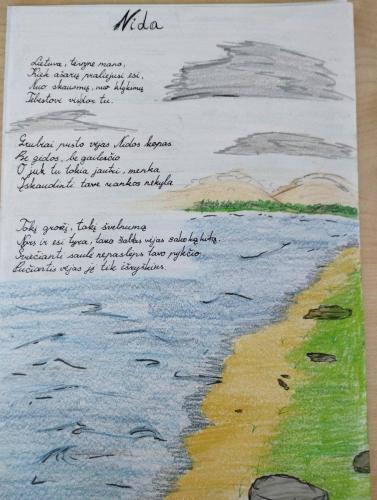 Nida
Lietuva, tėvyne mano,
Kiek ašarų praliejusi esi,
Nuo skausmų, nuo klyksmų
Tebestovi vis dar tu.
Grubiai pusto vėjas Nidos kopas
Be gėdos, be gailesčio
O juk tu tokia jautri, menka
Įskaudinti tave rankos nekyla
Tokį grožį, tokį švelnumą
Nors ir esi tyra, tavo šaltas vėjas sako ką kitą.
Šviečianti saulė nepaslėps tavo pykčio
Pučiantis vėjas jį tik išryškins.